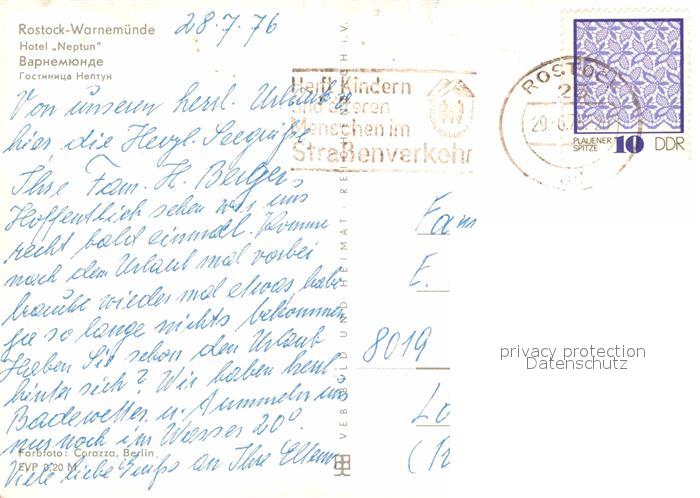 28.7.76
Rostock-Warnemünde
Hotel „Neptun"
Варнемюнде
Гостиница Нептун
Von unseren herzl. Urlaub
hier die Herzl. Seegrüße
Ihre Fam. H. Bergers
Hoffentlich sehen wir uns
recht bald einmal. Komme
nach dem Urlaub mal vorbei
brauche wieder mal etwas habe
ja so lange nichts bekommen
Haben Sie schon den Urlaub
hinter sich? Wir haben herrl.
Badewetter u. tummeln uns
nur noch im Wasser 20°
Viele liebe Grüße an Ihre Eltern
Farbfoto: Corazza, Berlin
EVP 0,20 M
VEB BILD UND HEIMAT · REICHENBACH I. V.
Helft Kindern
und älteren
Menschen im
Straßenverkehr
ROSTOCK
PLAUENER
SPITZE
10 DDR
Fam
E.
8019
privacy protection
Datenschutz